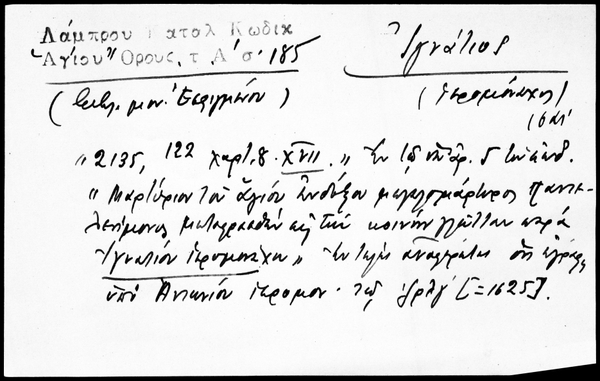 Λάμπρου Καταλ Κωδικ
"Αγίου" Όρους, τ Α' σ· 185
Ἰγνάτιος
(Βιβλ. μον. Ἐσφιγμένου)
(ἱερομόναχος)
"2135, 122 χαρτ. 8. XVII." Ἐν τῷ ὑπ' ἀρ. 5 τοῦ κώδ.
"Μαρτύριον τοῦ ἁγίου ἐνδόξου μεγαλομάρτυρος Παντε-
λεήμονος μεταφρασθὲν εἰς τὴν κοινὴν γλῶτταν παρὰ
Ἰγνατίου ἱερομονάχου" Ἐν τέλει ἀναφέρεται ὅτι ἐγράφη
ὑπὸ Ἀντωνίου ἱερομον. τῷ ͵ζρλγ' [=1625].